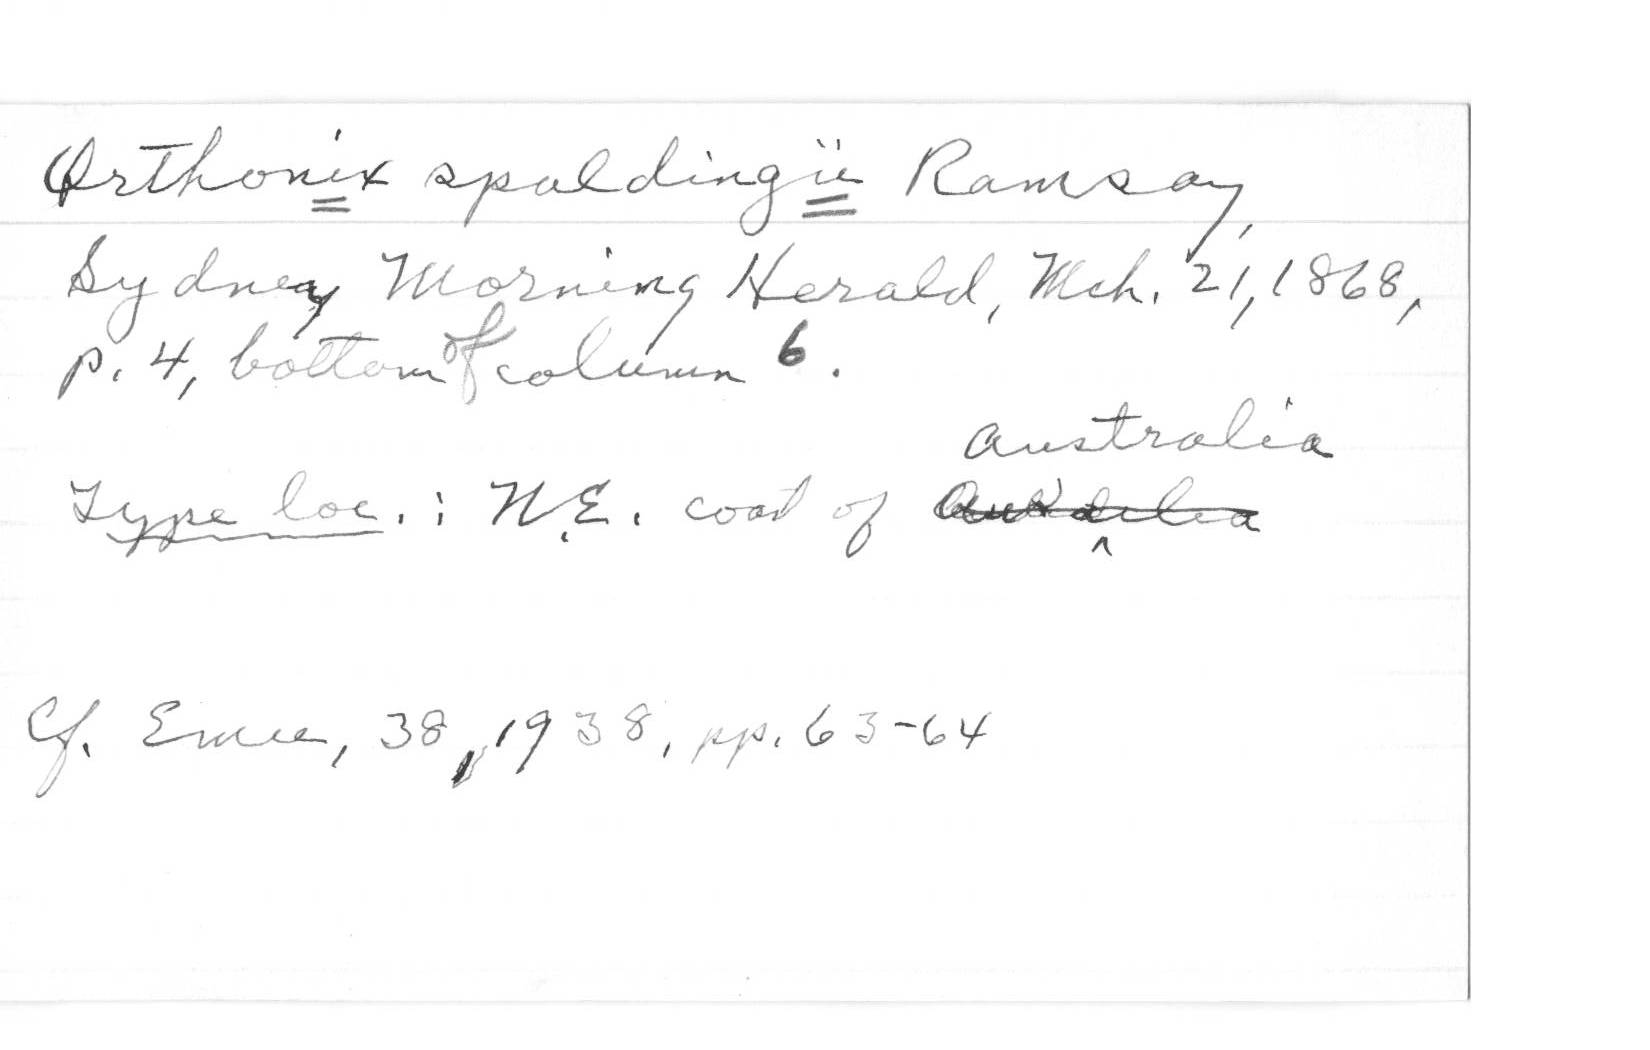 Orthonix spaldingii Ramsay,
Sydney Morning Herald, Mch. 21, 1868,
p. 4, bottom of column 6.
Australia
Type loc.: N.E. coast of
Cf. Emu, 38, 1938, pp. 63-64